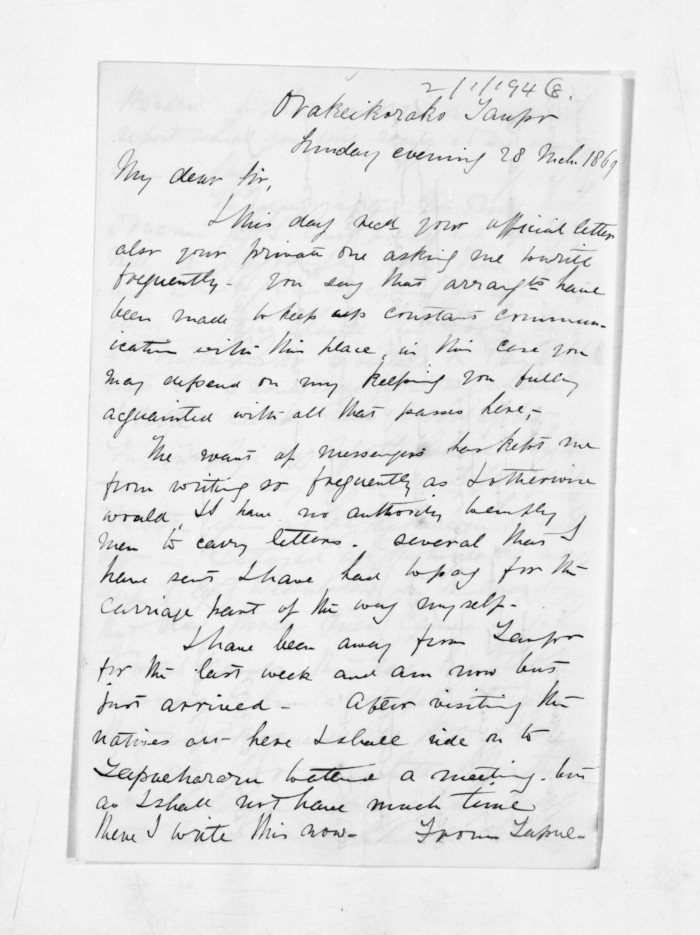 2/1/194 G.
Orakeikorako Taupo
Sunday evening 28 Mch. 1869
My dear Sir,
I this day recd your official letter
also your private one asking me to write
frequently - you say that arrangts have
been made to keep up constant commun-
ication with this place, in this case you
may depend on my keeping you fully
acquainted with all that passes here,-
The want of messengers has kept me
from writing so frequently as I otherwise
would, I have no authority to employ
men to carry letters. Several that I
have sent I have had to pay for the
carriage part of the way myself -
I have been away from Taupo
for the last week and am now but
just arrived - After visiting the
natives out here I shall ride on to
Tapuehararu to attend a meeting. but
as I shall not have much time
there I write this now - From Tapue-